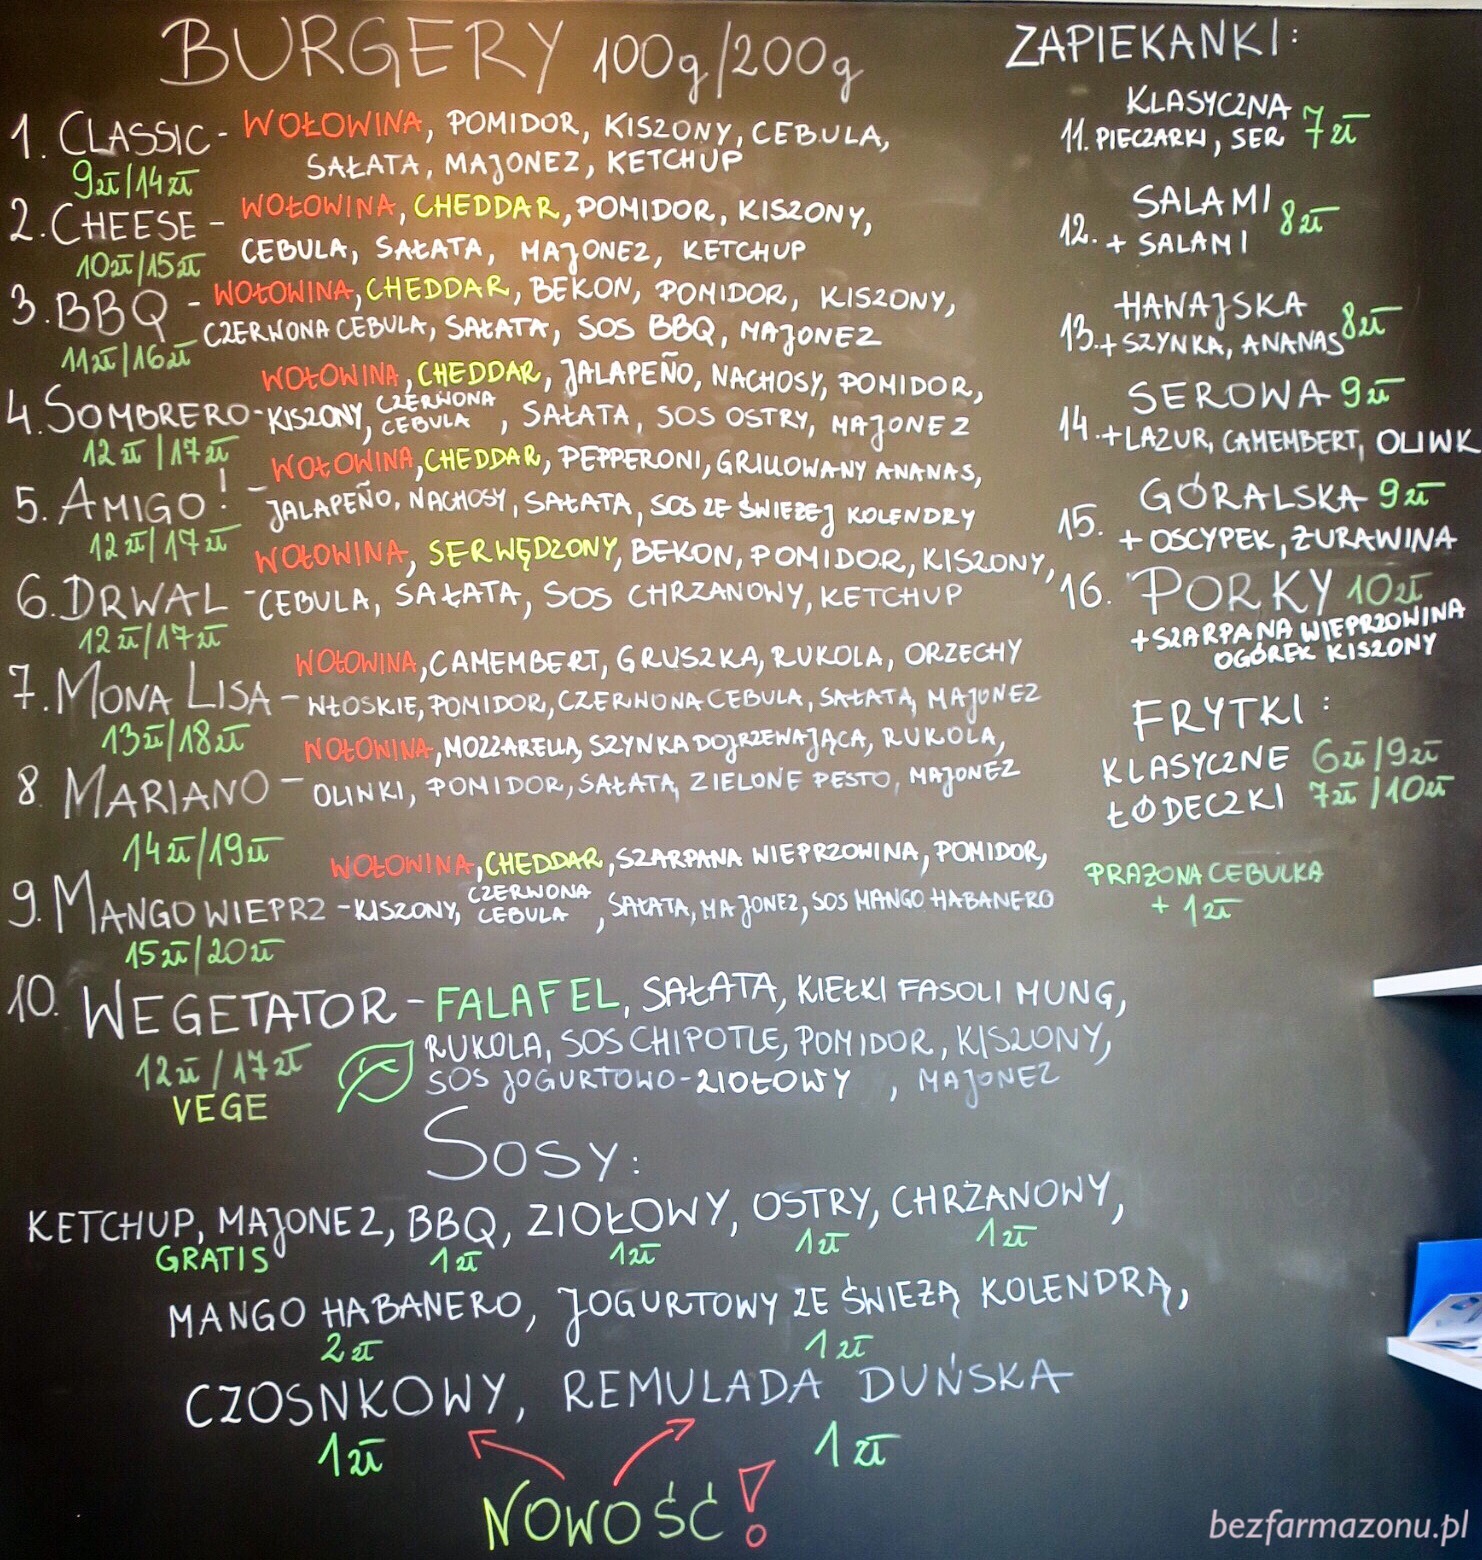 BURGERY 100g/200g
1. CLASSIC - WOŁOWINA, POMIDOR, KISZONY, CEBULA,
SAŁATA, MAJONEZ, KETCHUP
9zł/14zł
2. CHEESE - WOŁOWINA, CHEDDAR, POMIDOR, KISZONY,
CEBULA, SAŁATA, MAJONEZ, KETCHUP
10zł/15zł
3. BBQ - WOŁOWINA, CHEDDAR, BEKON, POMIDOR, KISZONY,
CZERWONA CEBULA, SAŁATA, SOS BBQ, MAJONEZ
11zł/16zł
WOŁOWINA, CHEDDAR, JALAPEÑO, NACHOSY, POMIDOR,
4. SOMBRERO - KISZONY, CZERWONA CEBULA, SAŁATA, SOS OSTRY, MAJONEZ
12zł/17zł
WOŁOWINA, CHEDDAR, PEPPERONI, GRILLOWANY ANANAS,
5. AMIGO! - JALAPEÑO, NACHOSY, SAŁATA, SOS ZE ŚWIEŻEJ KOLENDRY
12zł/17zł
WOŁOWINA, SER WĘDZONY, BEKON, POMIDOR, KISZONY,
6. DRWAL - CEBULA, SAŁATA, SOS CHRZANOWY, KETCHUP
12zł/17zł
WOŁOWINA, CAMEMBERT, GRUSZKA, RUKOLA, ORZECHY
7. MONA LISA - WŁOSKIE, POMIDOR, CZERWONA CEBULA, SAŁATA, MAJONEZ
13zł/18zł
WOŁOWINA, MOZZARELLA, SZYNKA DOJRZEWAJĄCA, RUKOLA,
8. MARIANO - OLIWKI, POMIDOR, SAŁATA, ZIELONE PESTO, MAJONEZ
14zł/19zł
WOŁOWINA, CHEDDAR, SZARPANA WIEPRZOWINA, POMIDOR,
9. MANGOWIEPRZ - KISZONY, CZERWONA CEBULA, SAŁATA, MAJONEZ, SOS MANGO HABANERO
15zł/20zł
10. WEGETATOR - FALAFEL, SAŁATA, KIEŁKI FASOLI MUNG,
RUKOLA, SOS CHIPOTLE, POMIDOR, KISZONY,
12zł/17zł
SOS JOGURTOWO-ZIOŁOWY, MAJONEZ
VEGE
SOSY:
KETCHUP, MAJONEZ, BBQ, ZIOŁOWY, OSTRY, CHRZANOWY,
GRATIS 1zł 1zł 1zł 1zł
MANGO HABANERO, JOGURTOWY ZE ŚWIEŻĄ KOLENDRĄ,
2zł 1zł
CZOSNKOWY, REMULADA DUŃSKA
1zł 1zł
NOWOŚĆ!
ZAPIEKANKI:
KLASYCZNA
11. PIECZARKI, SER 7zł
SALAMI 8zł
12. + SALAMI
HAWAJSKA 8zł
13. + SZYNKA, ANANAS
SEROWA 9zł
14. + LAZUR, CAMEMBERT, OLIWK
GÓRALSKA 9zł
15. + OSCYPEK, ŻURAWINA
16. PORKY 10zł
+ SZARPANA WIEPRZOWINA
OGÓREK KISZONY
FRYTKI:
KLASYCZNE 6zł/9zł
ŁÓDECZKI 7zł/10zł
PRAŻONA CEBULKA
+ 1zł
bezfarmazonu.pl